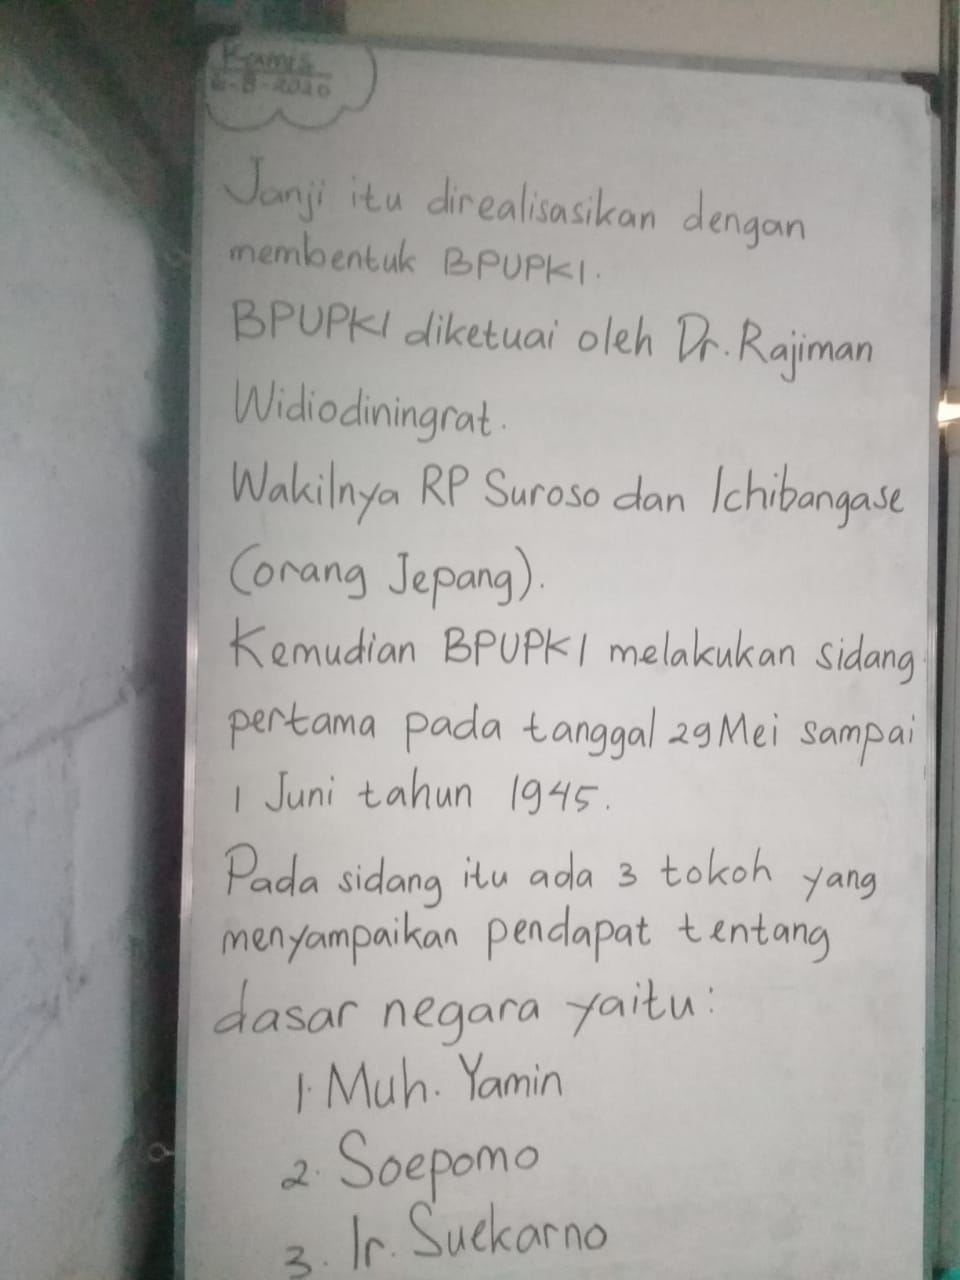 Kamis
6-8-2020
Janji itu direalisasikan dengan
membentuk BPUPKI.
BPUPKI diketuai oleh Dr. Rajiman
Widiodiningrat.
Wakilnya RP Suroso dan Ichibangase
(orang Jepang).
Kemudian BPUPKI melakukan sidang
pertama pada tanggal 29 Mei sampai
1 Juni tahun 1945.
Pada sidang itu ada 3 tokoh yang
menyampaikan pendapat tentang
dasar negara yaitu:
1. Muh. Yamin
2. Soepomo
3. Ir. Suekarno